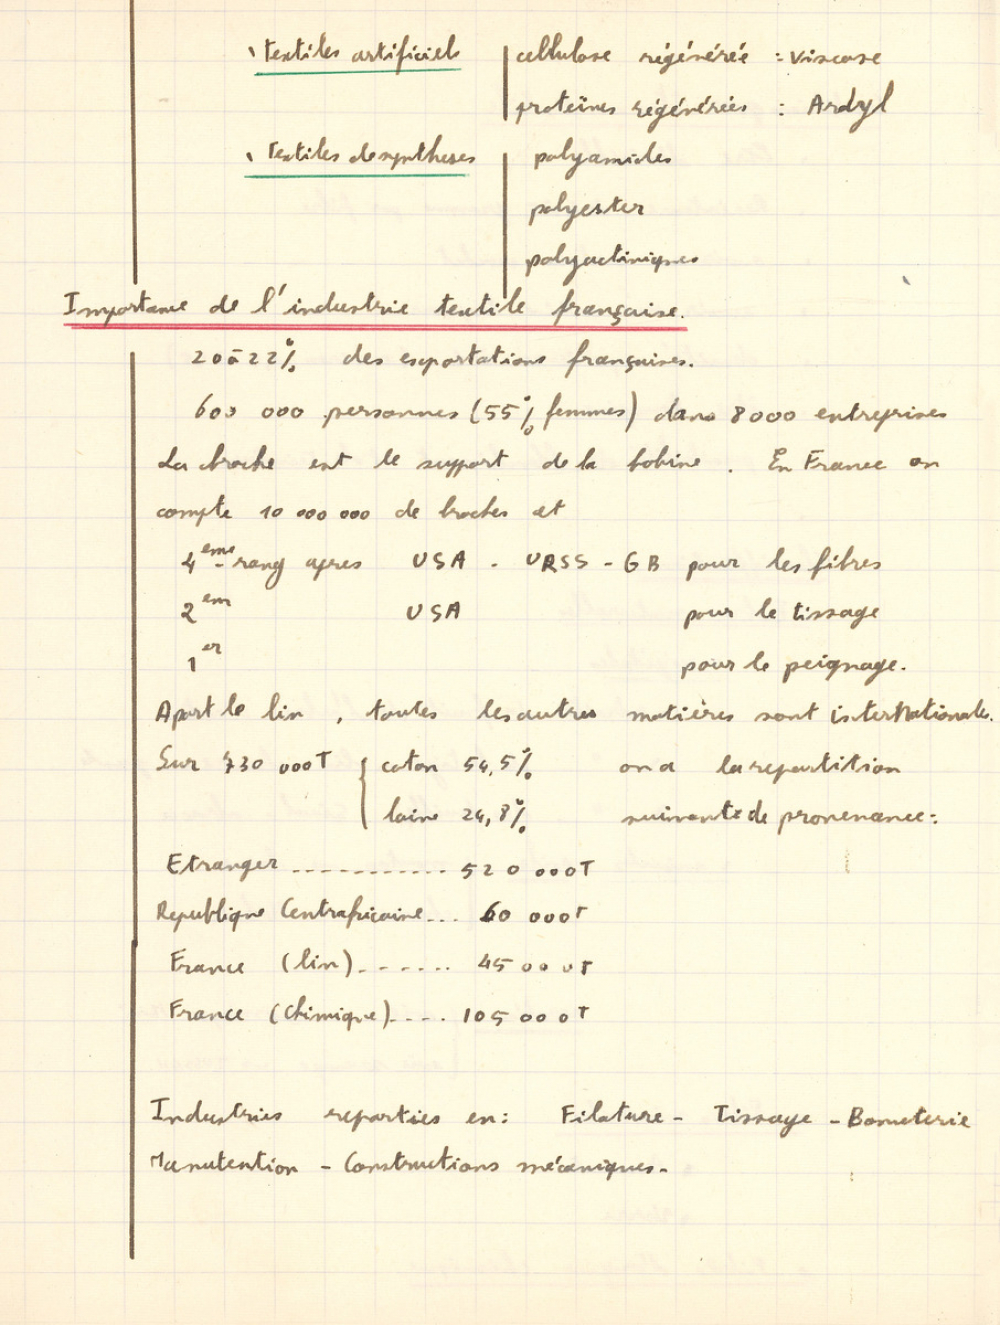 Textiles artificiels cellulose régénérée : Viscose
protéines régénérées : Ardyl
Textiles de syntheses polyamides
polyester
polyactiniques
Importance de l'industrie textile française.
20 à 22% des exportations françaises.
600 000 personnes (55% femmes) dans 8000 entreprises
La broche est le support de la bobine. En France on
compte 10 000 000 de broches et
4eme rang apres USA - URSS - GB pour les fibres
2em USA pour le tissage
1er pour le peignage.
Apart le lin, toutes les autres matières sont internationales.
Sur 730 000T { coton 54,5% on a la repartition
laine 24,8% suivante de provenance :
Etranger ........... 520 000T
Republique Centrafricaine... 60 000T
France (lin)....... 45 000T
France (chimique)..... 105 000T
Industries reparties en : Filature - Tissage - Bonneterie
Manutention - Constructions mécaniques.